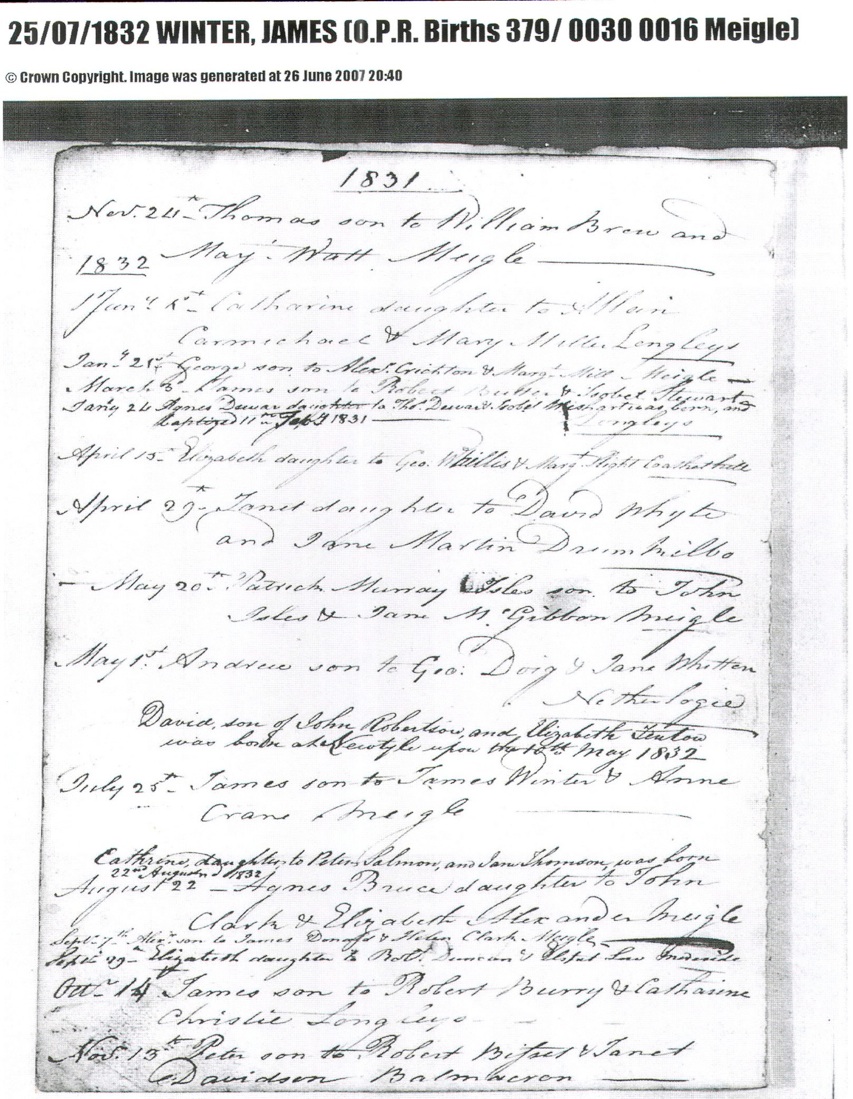 25/07/1832 WINTER, JAMES (O.P.R. Births 379/ 0030 0016 Meigle)
© Crown Copyright. Image was generated at 26 June 2007 20:40
1831
Nov. 24th Thomas son to William Brew and
1832 May Watt Meigle
Jany 1st Catharine daughter to Allan
Carmichael & Mary Miller Longleys
Jany 21st George son to Alexr Crichton & Margt Mill Meigle
March 3d James son to Robert & Isobel Stewart
Jany 24 Agnes Dewar daughter to Tho. Dewar & Isobel was born, and
Longleys
Baptized 11th Feby 1831
April 15th Elizabeth daughter to Geo. Whillis & Margt
April 29th Janet daughter to David Whyte
and Jane Martin Drumkilbo
May 20th Patrick Murray Isles son to John
Isles & Jane McGibbon Meigle
May 1st Andrew son to Geo: Doig & Jane Whitten
Netherlogie
David, son of John Robertson, and Elizabeth Fenton
was born at Newtyle upon the May 1832
July 25th James son to James Winter & Anne
Crane Meigle
Cathrine, daughter to Peter Salmon, and Jane Thomson, was born
22nd August 1832
August 22 Agnes Bruce daughter to John
Clark & Elizabeth Alexander Meigle
Septr 7th Alexr son to James & Helen Clark Meigle
Septr 29th Elizabeth daughter to Robt Duncan & Law
Octr 14 James son to Robert Burry & Catharine
Christie Longleys
Nov. 13th Peter son to Robert Bisset & Janet
Davidson Balmacron